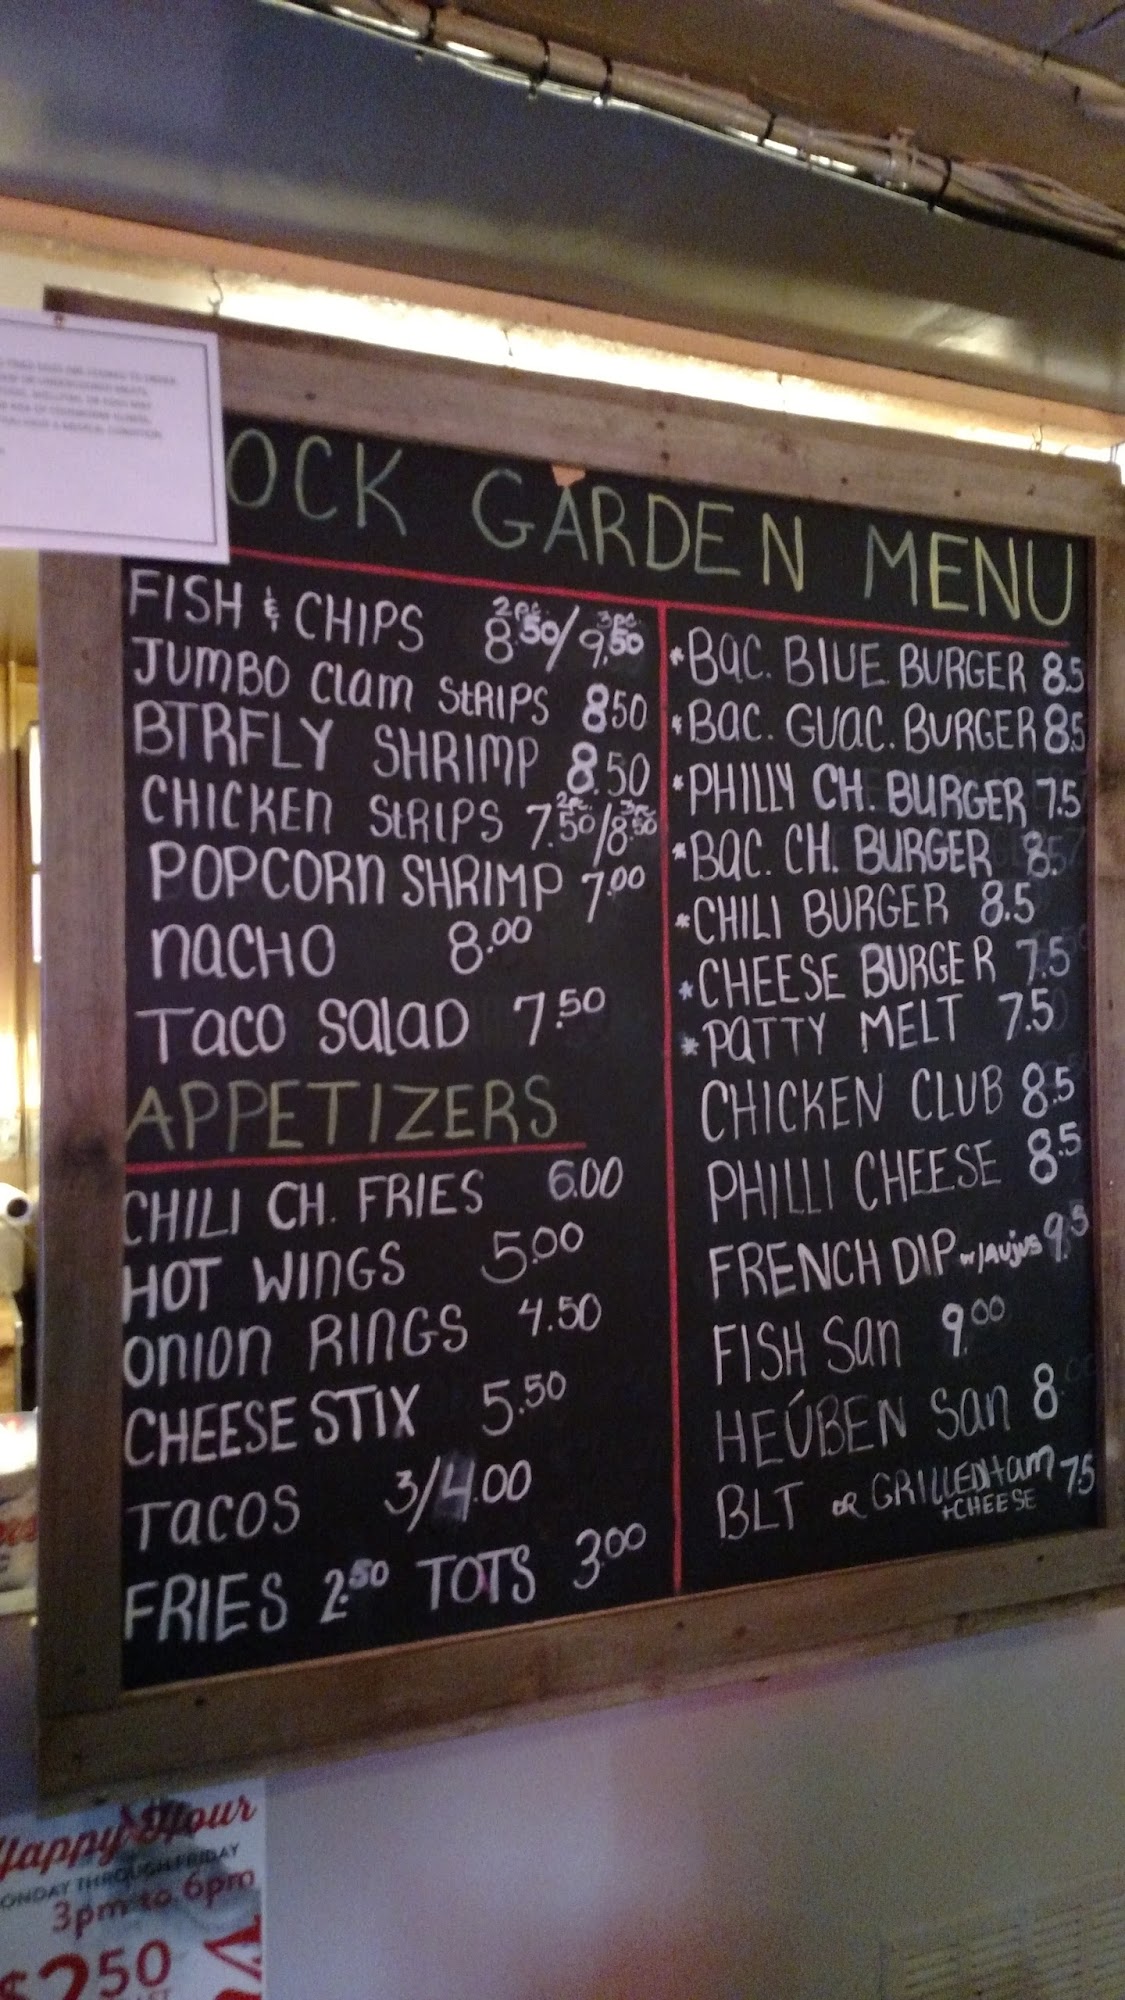 OCK GARDEN MENU
FISH & CHIPS 2PC. 8.50/ 3PC. 9.50
JUMBO CLAM STRIPS 850
BTRFLY SHRIMP 8.50
CHICKEN STRIPS 2PC. 7.50/ 3PC. 8.50
POPCORN SHRIMP 7.00
NACHO 8.00
TACO SALAD 7.50
APPETIZERS
CHILI CH. FRIES 6.00
HOT WINGS 5.00
ONION RINGS 4.50
CHEESE STIX 5.50
TACOS 3/4.00
FRIES 2.50 TOTS 3.00
*BAC. BLUE. BURGER 8.5
*BAC. GUAC. BURGER 8.5
*PHILLY CH. BURGER 7.5
*BAC. CH. BURGER 8.5
*CHILI BURGER 8.5
*CHEESE BURGER 7.5
*PATTY MELT 7.5
CHICKEN CLUB 8.5
PHILLI CHEESE 8.5
FRENCH DIP w/AUJUS 9.5
FISH SAN 9.00
HEÚBEN SAN 8
BLT OR GRILLED HAM 7.5
+CHEESE
Happy Hour
ONDAY THROUGH FRIDAY
3pm to 6pm
$2.50